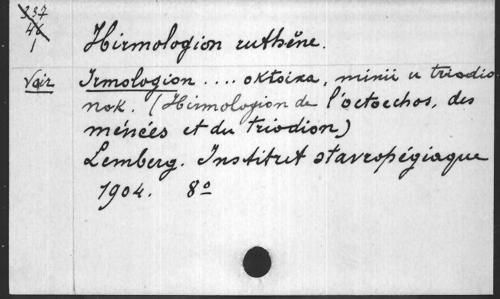 337
46
1
Hirmologion ruthène.
Voir Irmologion .... oktoixa, minii u triodio
nok. (Hirmologion de l'octoechos, des
ménées et du triodion)
Lemberg. Institut stavropégiaque
1904. 8º